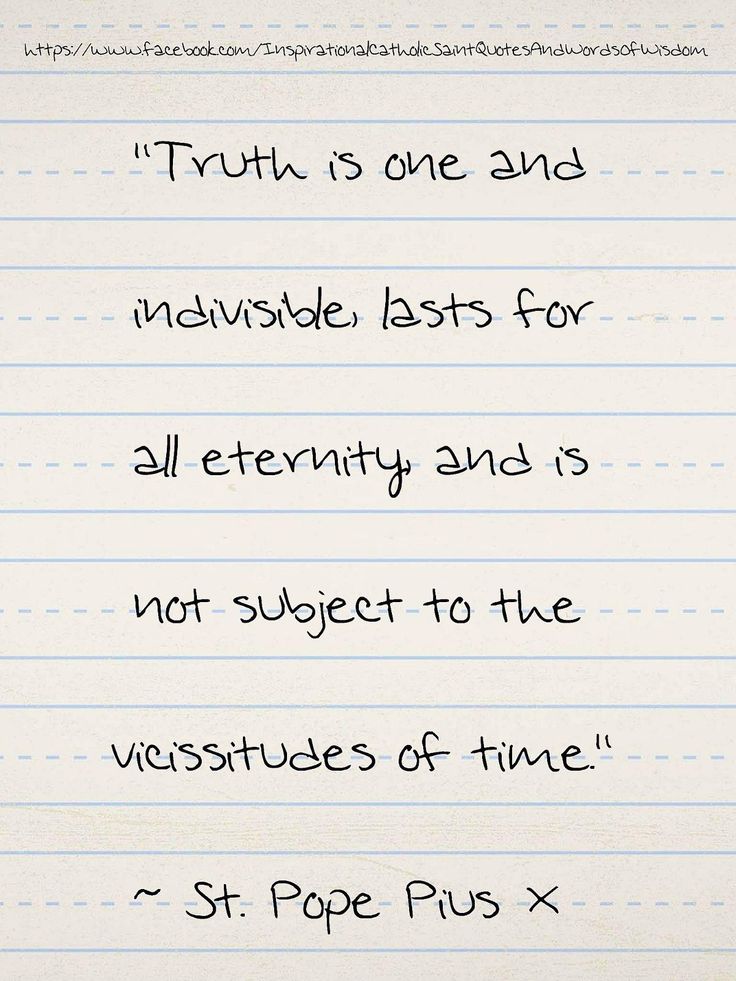 https://www.facebook.com/InspirationalCatholicSaintQuotesAndWordsOfWisdom
"Truth is one and
indivisible, lasts for
all eternity, and is
not subject to the
vicissitudes of time."
~ St. Pope Pius X